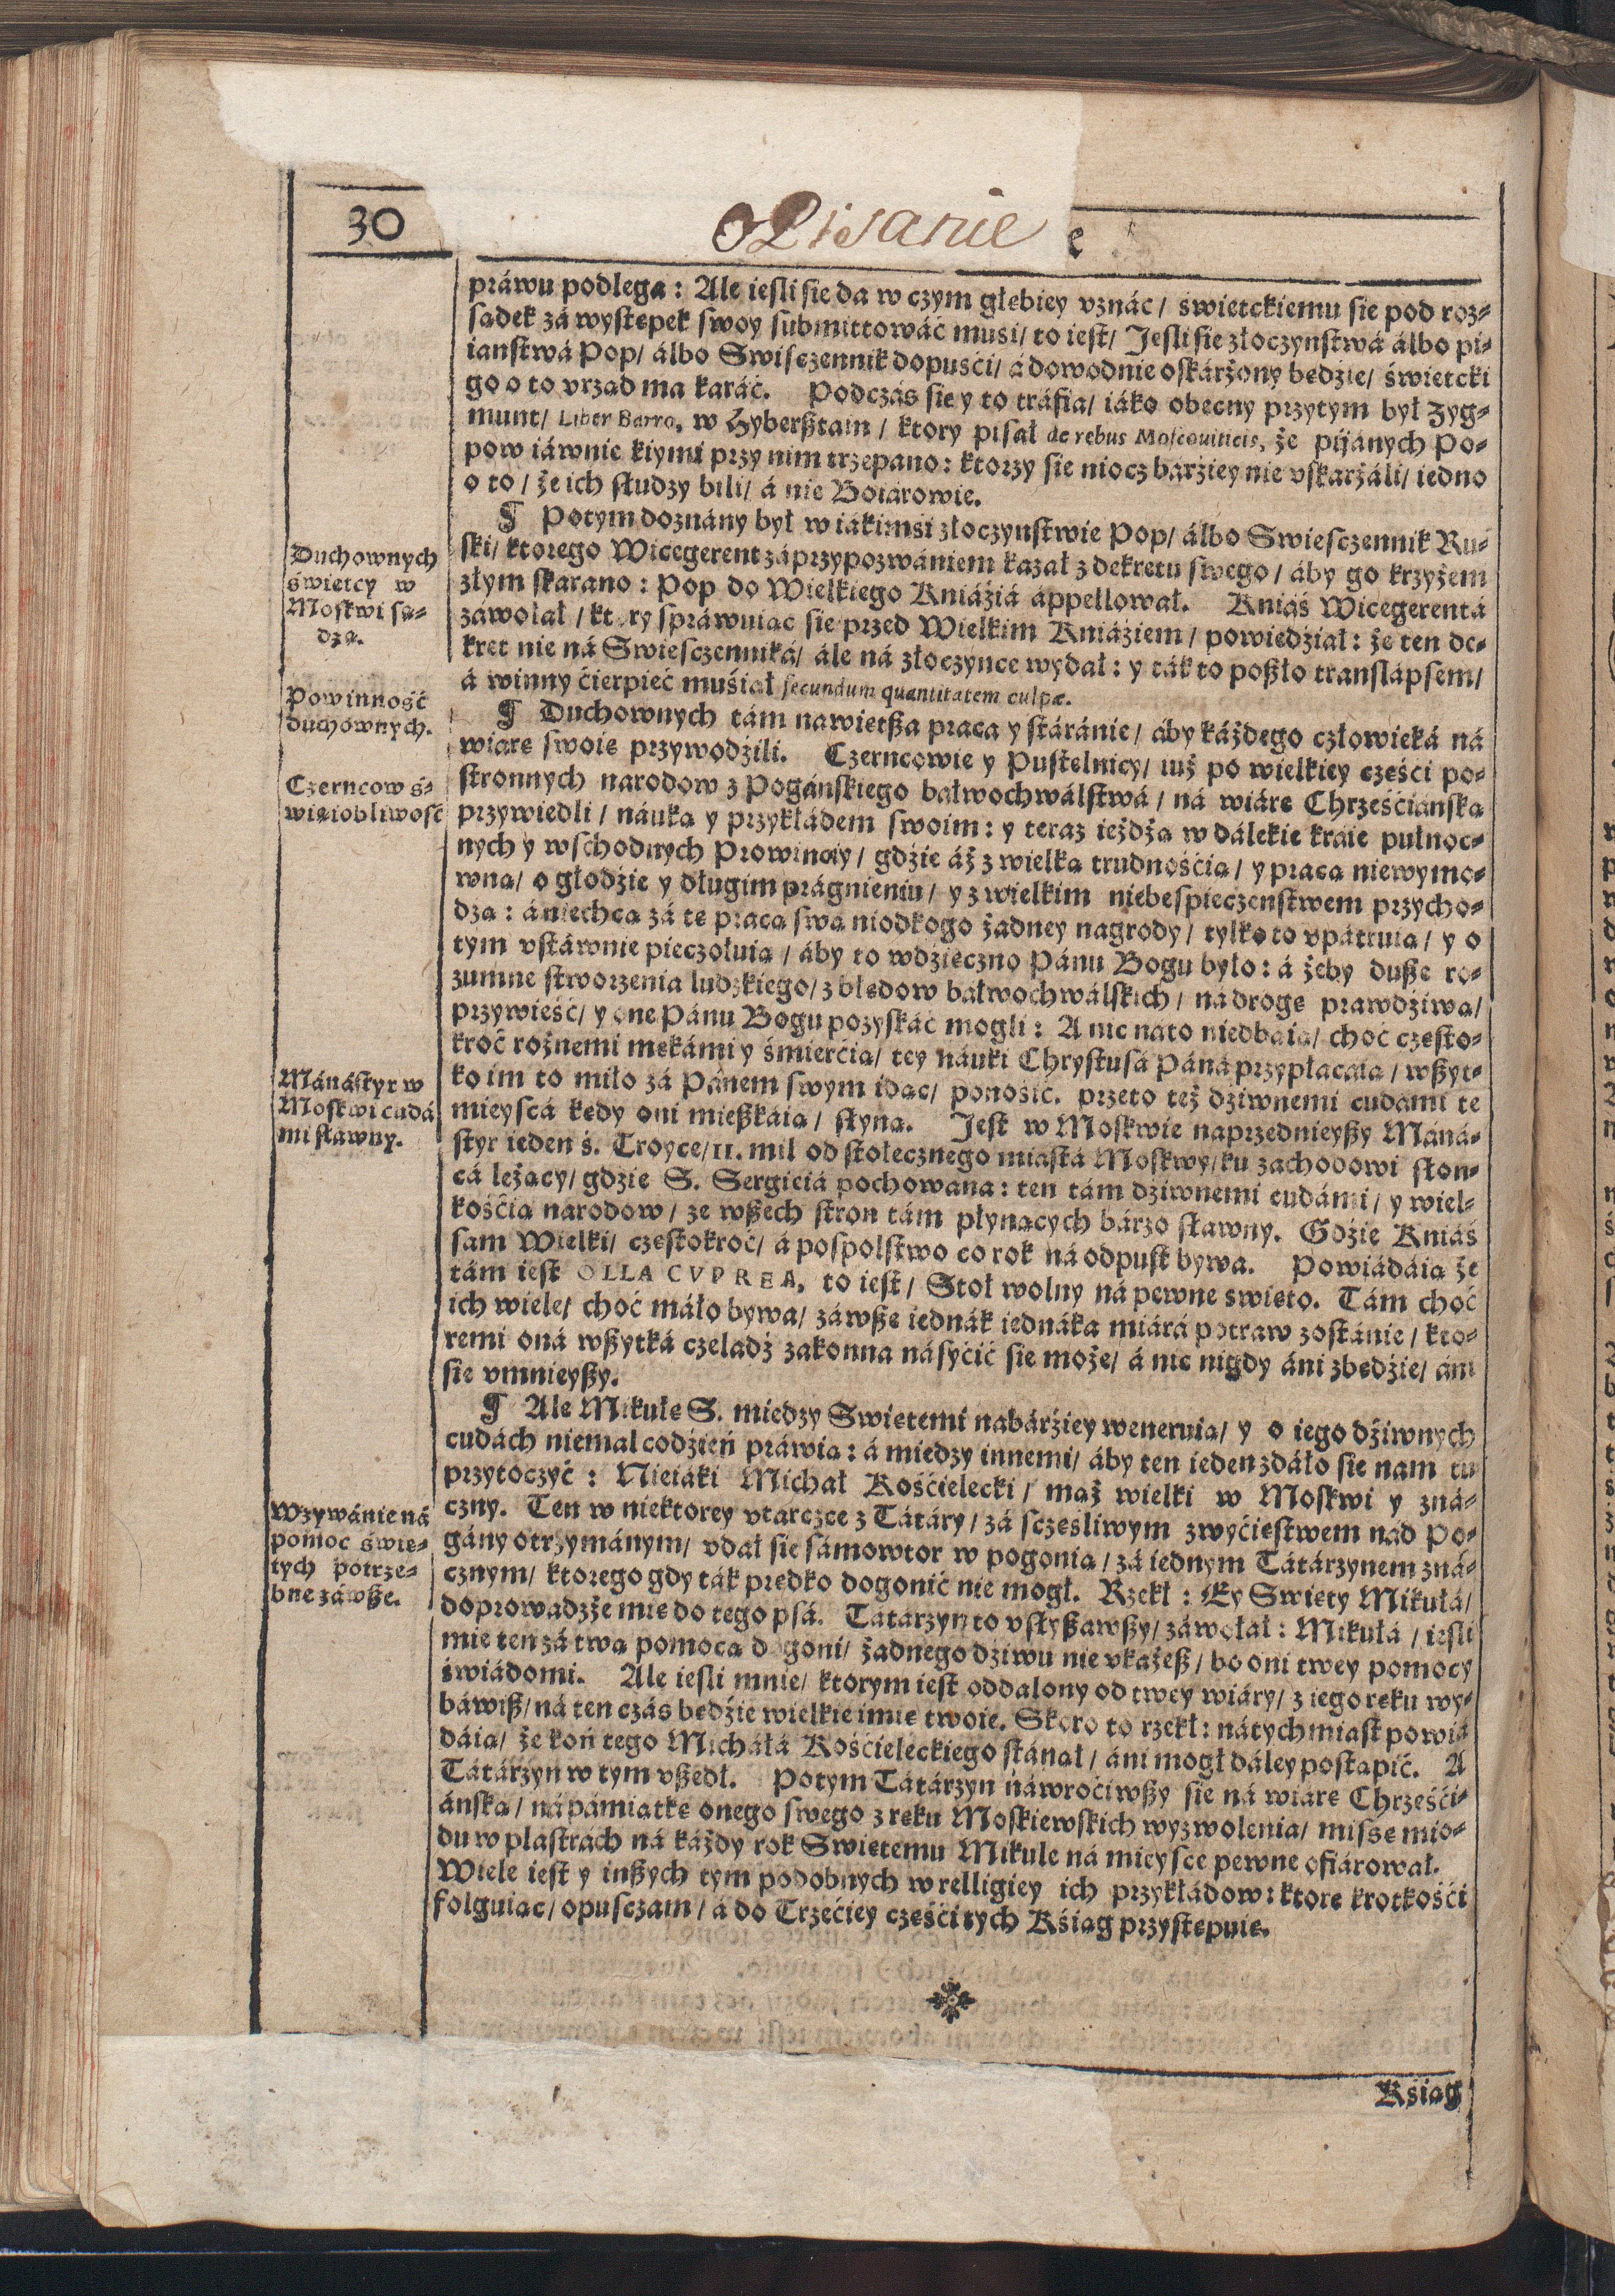 30
oPisanie e
práwu podlega: Ale iesli sie da w czym głebiey vznác / świetckiemu sie pod roz-
sadek zá wystepek swoy submittowáć musi / to iest / Jesli sie złoczynstwá álbo pi-
ianstwá Pop / álbo Swisczennik dopuśći / á dowodnie oskárżony bedzie / świetcki
go o to vrzad ma karáć. Podczás sie y to tráfia / iáko obecny przytym był Zyg-
munt / Liber Barro, w Hyberßtain / ktory pisał de rebus Moscouiticis, że pijánych Po-
pow iáwnie kiymi przy nim trzepano: ktorzy sie niocz bárziey nie vskarżáli / iedno
o to / że ich słudzy bili / á nie Boiárowie.
¶ Potym doznány był w iákimsi złoczynstwie Pop / álbo Swiesczennik Ru-
ski / ktorego Wicegerent zá przypozwániem kazał z dekretu swego / áby go krzyżem
złym skarano: Pop do Wielkiego Kniáźiá áppellował. Kniáś Wicegerentá
záwołał / ktory spráwuiac sie przed Wielkim Kniáźiem / powiedźiał: że ten de-
kret nie ná Swiesczenniká / ále ná złoczynce wydał: y ták to poßło translapsem /
á winny ćierpieć muśiał secundum quantitatem culpæ.
¶ Duchownych tám nawietßa praca y stáránie / áby káżdego człowieká ná
wiare swoie przywodźili. Czerncowie y Pustelnicy / iuż po wielkiey cześći po-
stronnych narodow z Pogánskiego bałwochwálstwá / ná wiáre Chrześćiánska
przywiedli / náuka y przykłádem swoim: y teraz ieżdża w dálekie kraie pułnoc-
nych y wschodnych Prowinciy / gdźie áż z wielka trudnośćia / y praca niewymo-
wna / o głodźie y długim prágnieniu / y z wielkim niebespieczenstwem przycho-
dza: á niechca zá te praca swa niodkogo żadney nagrody / tylko to vpátruia / y o
tym vstáwnie pieczołuia / áby to wdźieczno Pánu Bogu było: á żeby duße ro-
zumne stworzenia ludzkiego / z bledow bałwochwálskich / na droge prawdźiwa /
przywieść / y one Pánu Bogu pozyskáć mogli: A nic na to niedbaia / choć często-
kroć rożnemi mekámi y śmierćia / tey náuki Chrystusá Páná przypłacáia / wßyt-
ko im to miło zá Pánem swym idac / ponośić. przeto też dźiwnemi cudámi te
mieyscá kedy oni mießkáia / słyna. Jest w Moskwie naprzednieyßy Máná-
styr ieden ś. Troyce / 11. mil od stołecznego miástá Moskwy / ku zachodowi słon-
cá leżacy / gdzie S. Sergiciá pochowana: ten tám dźiwnemi cudámi / y wiel-
kośćia narodow / ze wßech stron tám płynacych bárzo sławny. Gdźie Kniáś
sam Wielki / czestokroć / á pospolstwo co rok ná odpust bywa. Powiádáia że
tám iest OLLA CVPREA, to iest / Stoł wolny ná pewne swieto. Tám choć
ich wiele / choć máło bywa / záwße iednák iednáka miárá potraw zostánie / kto-
remi oná wßytká czeladź zakonna násyćić sie może / á nic nigdy áni zbedźie / áni
sie vmnieyßy.
¶ Ale Mikułe S. miedzy Swietemi nabárźiey weneruia / y o iego dźiwnych
cudách niemal codźień práwia: á miedzy innemi / áby ten ieden zdáło sie nam tu
przytoczyć: Nieiáki Michał Kośćielecki / maż wielki w Moskwi y zná-
czny. Ten w niektorey vtarczce z Tátáry / zá sczesliwym zwyćiestwem nad Po-
gány otrzymánym / vdał sie sámowtor w pogonia / zá iednym Tátárzynem zná-
cznym / ktorego gdy ták predko dogonić nie mogł. Rzekł: Ey Swiety Mikułá /
doprowadzże mie do tego psá. Tatárzyn to vsłyßawßy / záwołał: Mikułá / iesli
mie ten zá twa pomoca dogoni / żadnego dźiwu nie vkażeß / bo oni twey pomocy
świádomi. Ale iesli mnie / ktorym iest oddalony od twey wiáry / z iego reku wy-
báwiß / ná ten czás bedźie wielkie imie twoie. Skoro to rzekł: nátychmiast powiá
dáia / że koń tego Micháłá Kośćieleckiego stánał / áni mogł dáley postapić. A
Tátárzyn w tym vßedł. Potym Tátárzyn náwroćiwßy sie ná wiare Chrześći-
ánska / ná pámiatke onego swego z reku Moskiewskich wyzwolenia / misse mio-
du w plastrách ná káżdy rok Swietemu Mikule ná mieysce pewne ofiárował.
Wiele iest y inßych tym podobnych w relligiey ich przykłádow: ktore krotkośći
folguiac / opusczam / á do Trzećiey cześći tych Kśiag przystepuie.
Kśiag
Duchownych
świetcy w
Moskwi sa-
dza.
Powinność
duchownych.
Czerncow ś-
wiatobliwość
Mánástyr w
Moskwi cudá
mi sławny.
Wzywánie ná
pomoc świe-
tych potrze-
bne záwße.